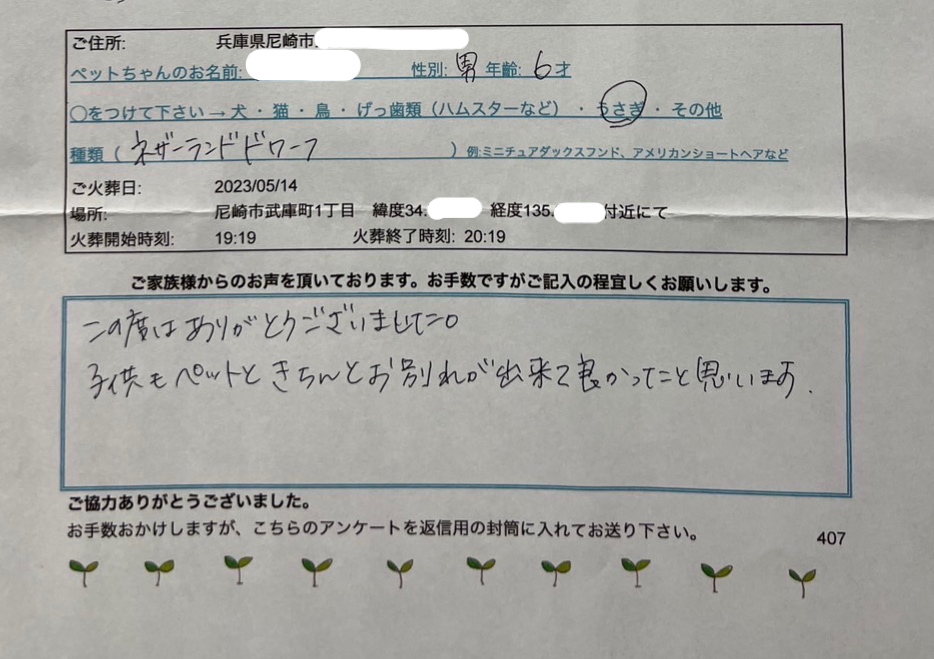 ご住所: 兵庫県尼崎市
ペットちゃんのお名前: 性別: 男 年齢: 6才
○をつけて下さい→犬・猫・鳥・げっ歯類（ハムスターなど）・うさぎ・その他
種類（ネザーランドドワーフ）例:ミニチュアダックスフンド、アメリカンショートヘアなど
ご火葬日: 2023/05/14
場所: 尼崎市武庫町1丁目 緯度34. 経度135. 付近にて
火葬開始時刻: 19:19 火葬終了時刻: 20:19
ご家族様からのお声を頂いております。お手数ですがご記入の程宜しくお願いします。
この度はありがとうございました。
子供もペットときちんとお別れが出来て良かったこと思います.
ご協力ありがとうございました。
お手数おかけしますが、こちらのアンケートを返信用の封筒に入れてお送り下さい。
407